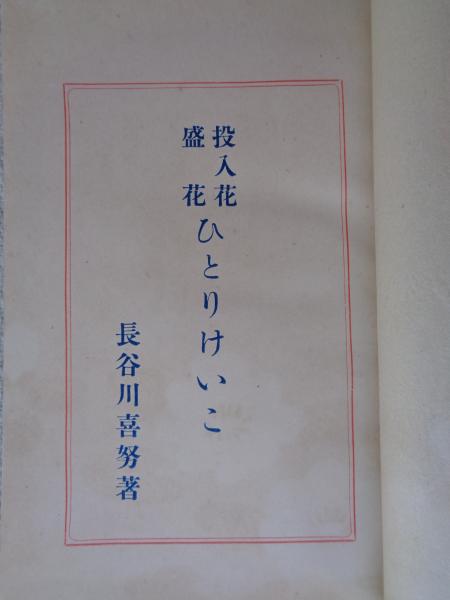 投入花
盛花
ひとりけいこ
長谷川喜努著